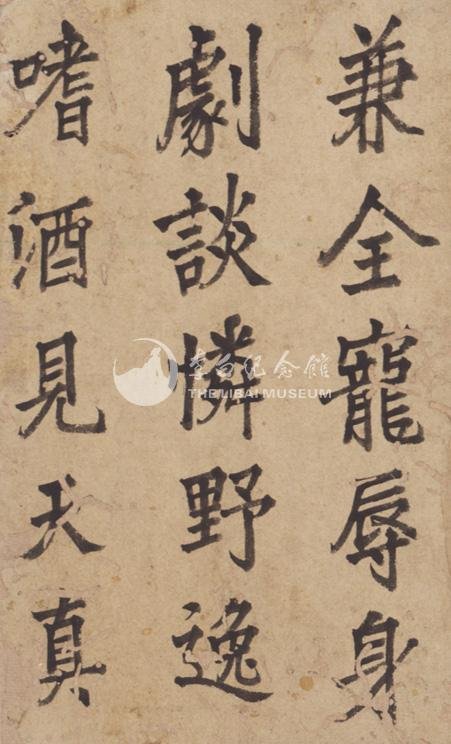 兼全寵辱身
劇談憐野逸
嗜酒見天真
李白纪念馆
THE LIBAI MUSEUM